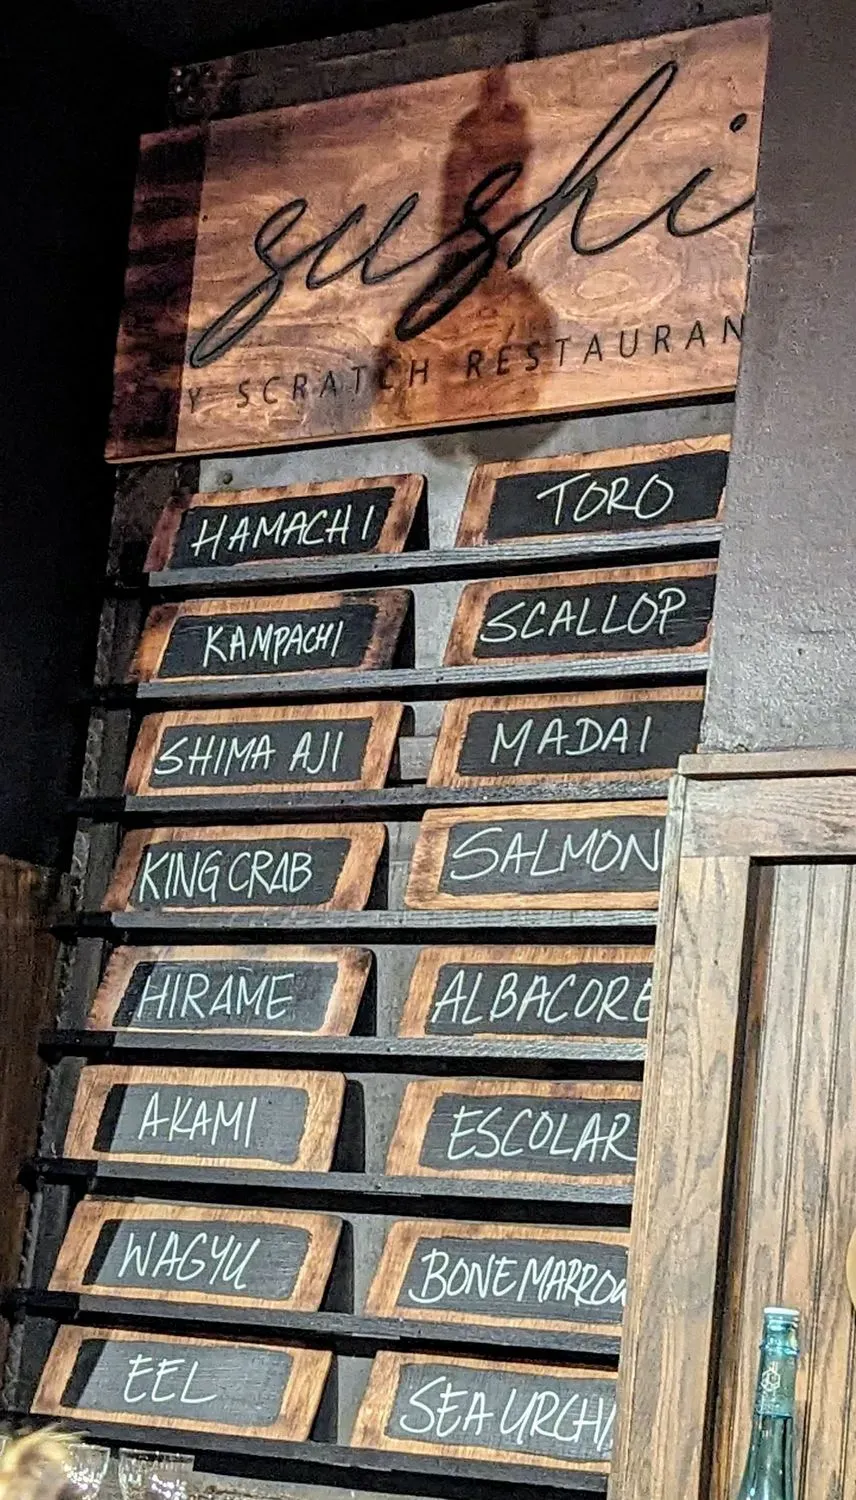 sushi
Y SCRATCH RESTAURAN
HAMACHI
TORO
KAMPACHI
SCALLOP
SHIMA AJI
MADAI
KING CRAB
SALMON
HIRAME
ALBACORE
AKAMI
ESCOLAR
WAGYU
BONE MARROW
EEL
SEA URCHI